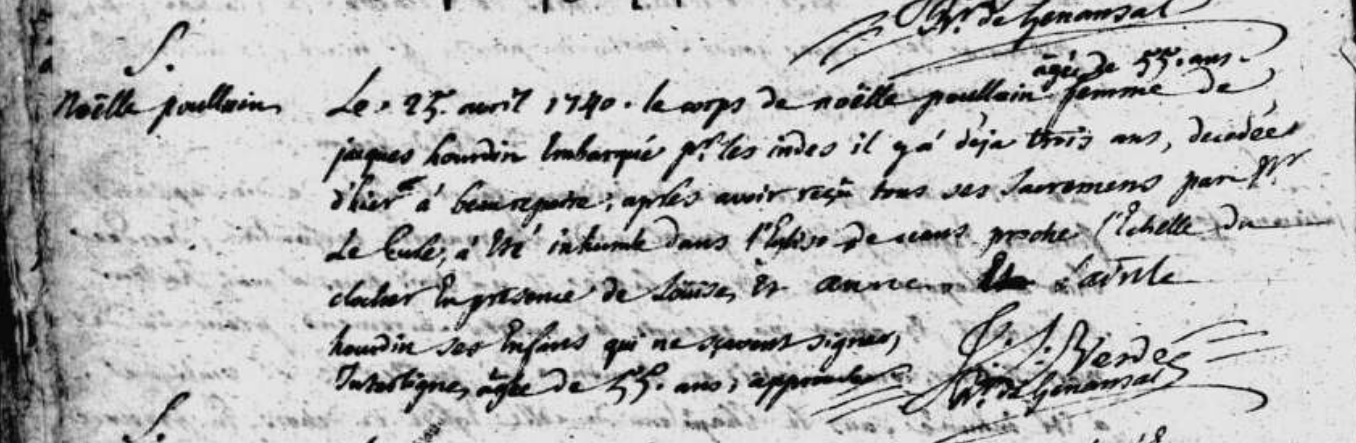 Vr. de Genansal
S.
Noëlle poullain
âgée de 55. ans.
Le. 25. avril 1740. le corps de noëlle poullain femme de
jacques hourdin Embarqué pr. les indes il y á déja trois ans, decedée
d'hier á beaurepaire; aprés avoir reçu tous ses Sacremens par Mr
Le Curé, á Eté inhumé dans l'Eglise de ceans proche l'Echelle du
clocher En presence de Loüise, Et anne
hourdin ses Enfans qui ne sçavent signer,
Interligne, âgée de 55. ans, approuvée
Vr. de Genansal
S.